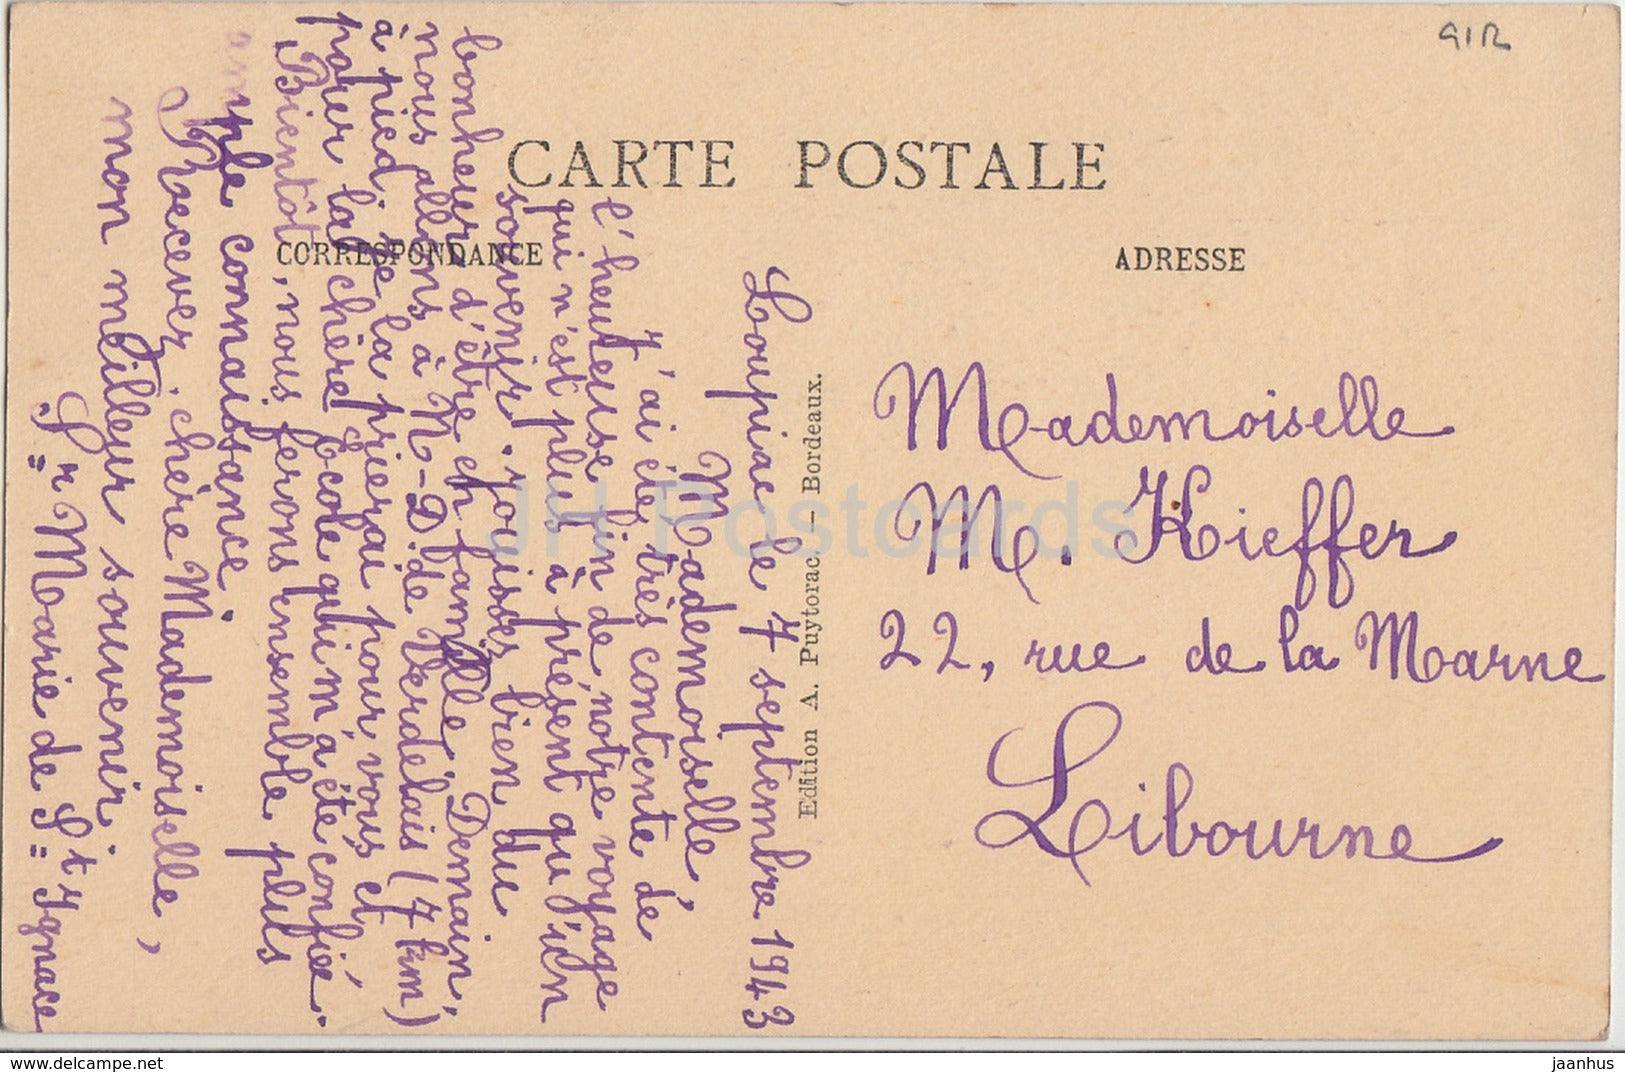 GIR
CARTE POSTALE
CORRESPONDANCE
ADRESSE
Loupiac le 7 septembre 1943
Mademoiselle,
J'ai été très contente de
l'heureuse fin de notre voyage
qui n'est plus à présent qu'un
souvenir. Jouissez bien du
bonheur d'être en famille. Demain,
nous allons à N-D. de Verdelais (7 km)
à pied, je la prierai pour vous et
pour la chère Ecole qui m'a été confiée.
Bientôt, nous ferons ensemble plus
ample connaissance.
Recevez, chère Mademoiselle,
mon meilleur souvenir
Sr Marie de St Ignace
Edition A. Puytorac. — Bordeaux.
Mademoiselle
M. Kieffer
22, rue de la Marne
Libourne
JH Postcards
https://www.delcampe.net
jaanhus